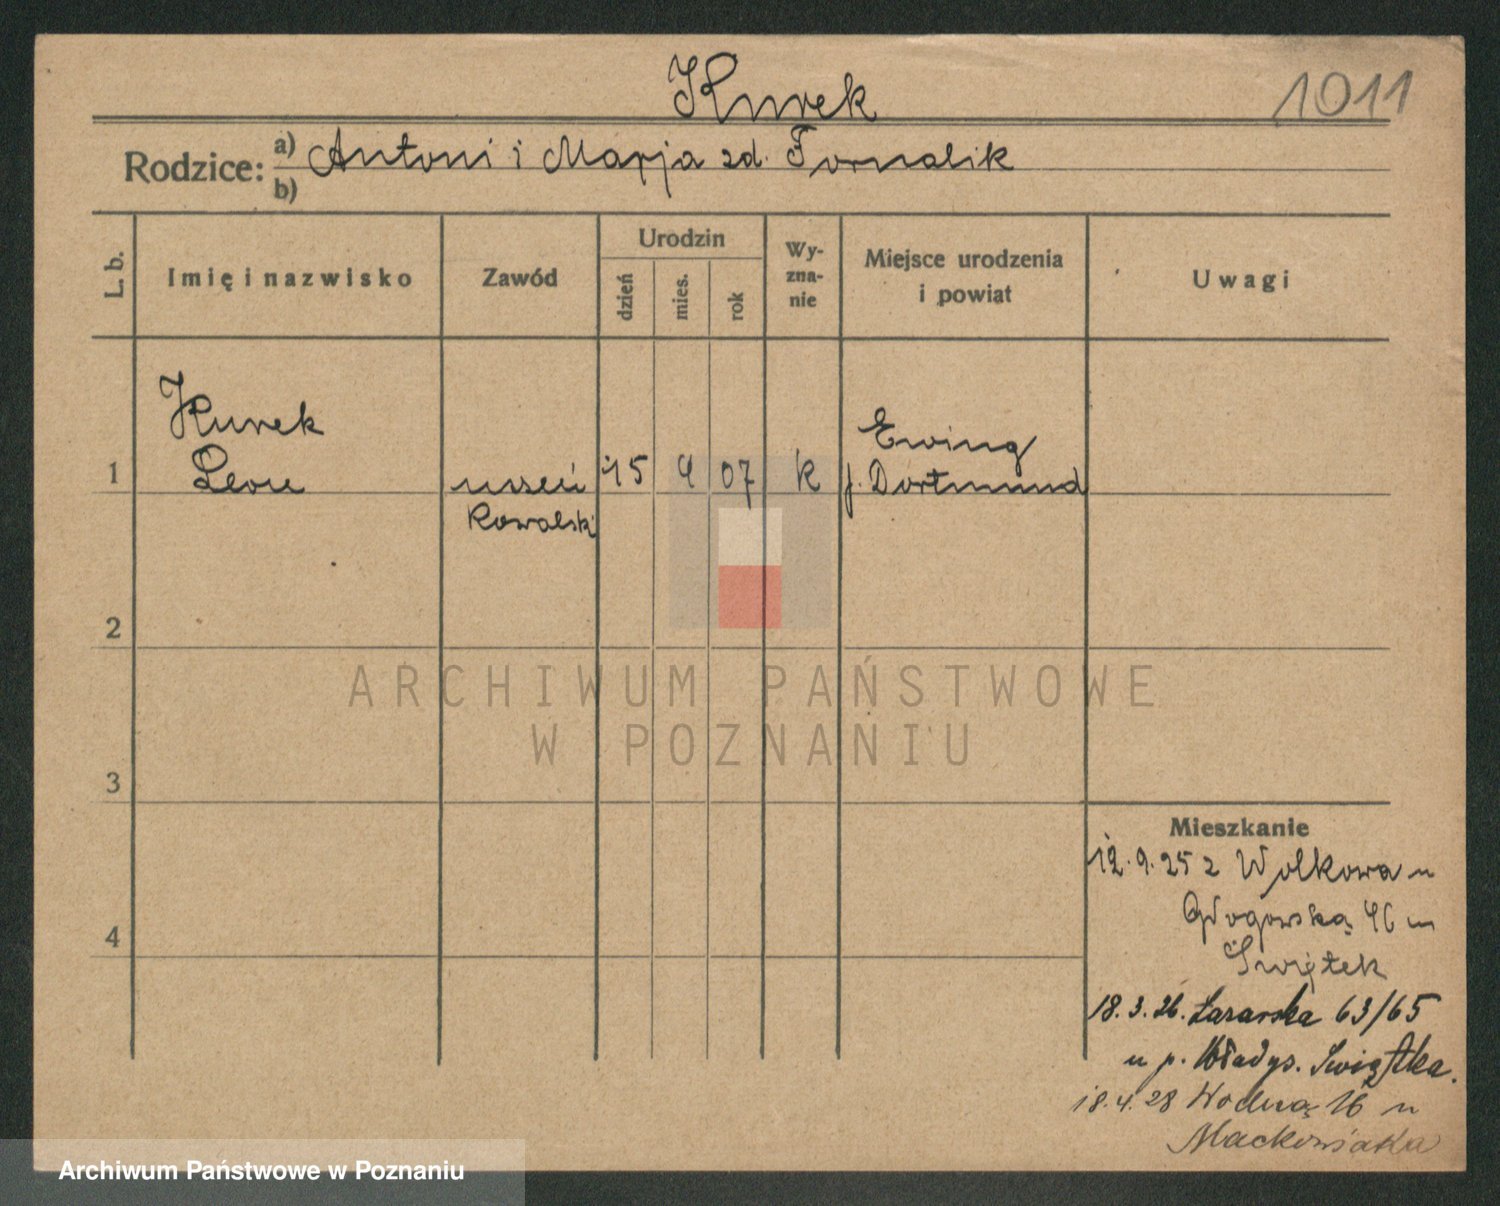 Kurek
1011
Rodzice: a) Antoni i Marja zd. Fornalik
b)
L. b.
Imię i nazwisko
Zawód
Urodzin
dzień
mies.
rok
Wy-
zna-
nie
Miejsce urodzenia
i powiat
Uwagi
Kurek
1 Leon
uczeń
kowalski
15 4 07
k
Ewing
p. Dortmund
2
3
4
ARCHIWUM PAŃSTWOWE
W POZNANIU
Mieszkanie
12.9.25 z Wolkowa u
Głogowska 46 u
Świętek
18.3.26. Łazarska 63/65
u p. Władys. Świątka.
18.4.28 Wodna 16 u
Maćkowiaka
Archiwum Państwowe w Poznaniu